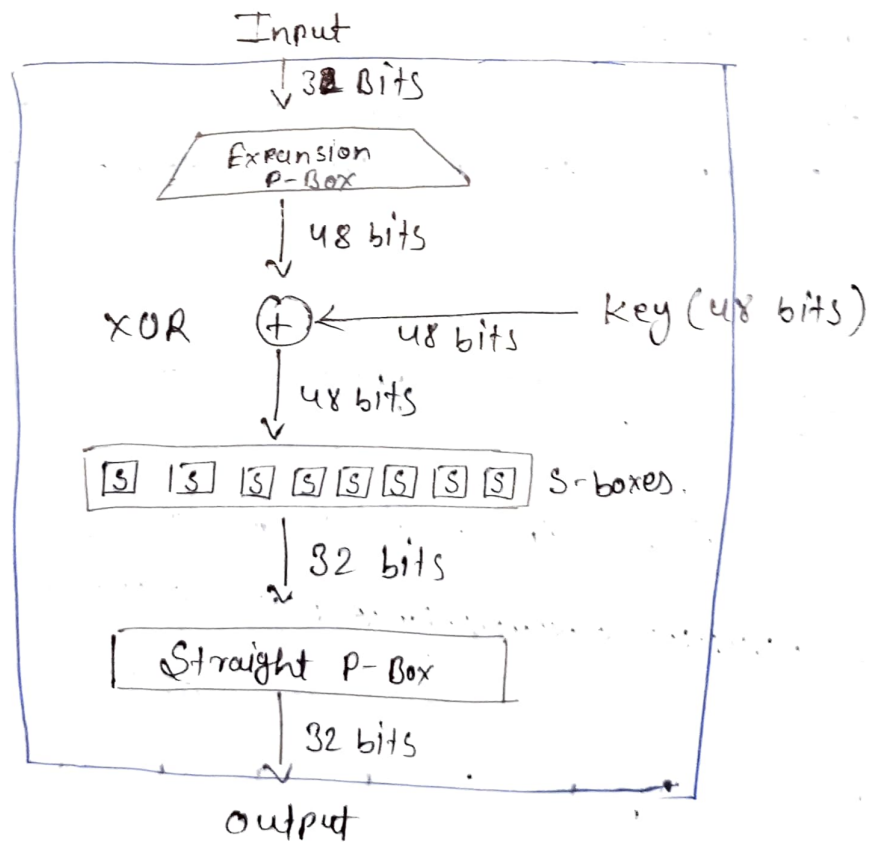 Input
32 Bits
Expansion
P-Box
48 bits
XOR + 48 bits Key (48 bits)
48 bits
S S S S S S S S S-boxes.
32 bits
Straight P-Box
32 bits
output